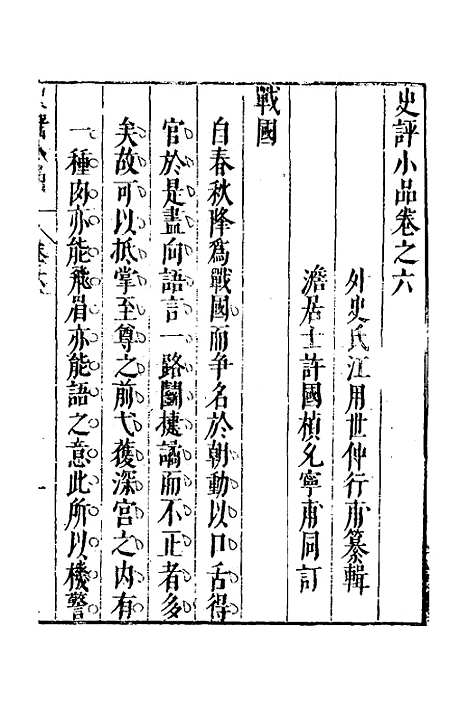 史評小品卷之六
外史氏江用世仲行甫纂輯
澹居士許國楨允寧甫同訂
戰國
自春秋降為戰國而爭名於朝動以口舌得
官於是盡向語言一路鬭捷譎而不正者多
矣故可以抵掌至尊之前弋獲深宮之內有
一種肉亦能飛眉亦能語之意此所以機警